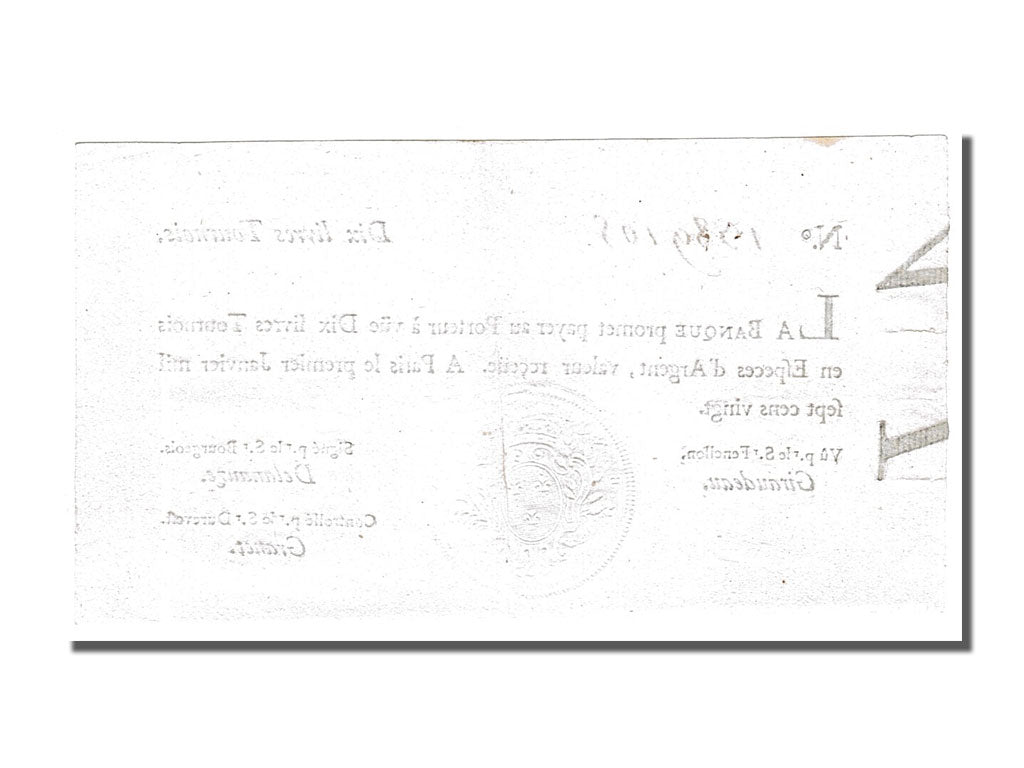 N.º 1389108 Dix livres Tournois.
LA BANQUE promet payer au Porteur à vûe Dix livres Tournois
en Eſpeces d'Argent, valeur reçeüe. A Paris le premier Janvier mil
ſept cens vingt.
Vû p.r le S.r Fenellon,
Giraudeau.
Signé p.r le S.r Bourgeois.
Delanauze.
Controllé p.r le S.r Durevest.
Granet.